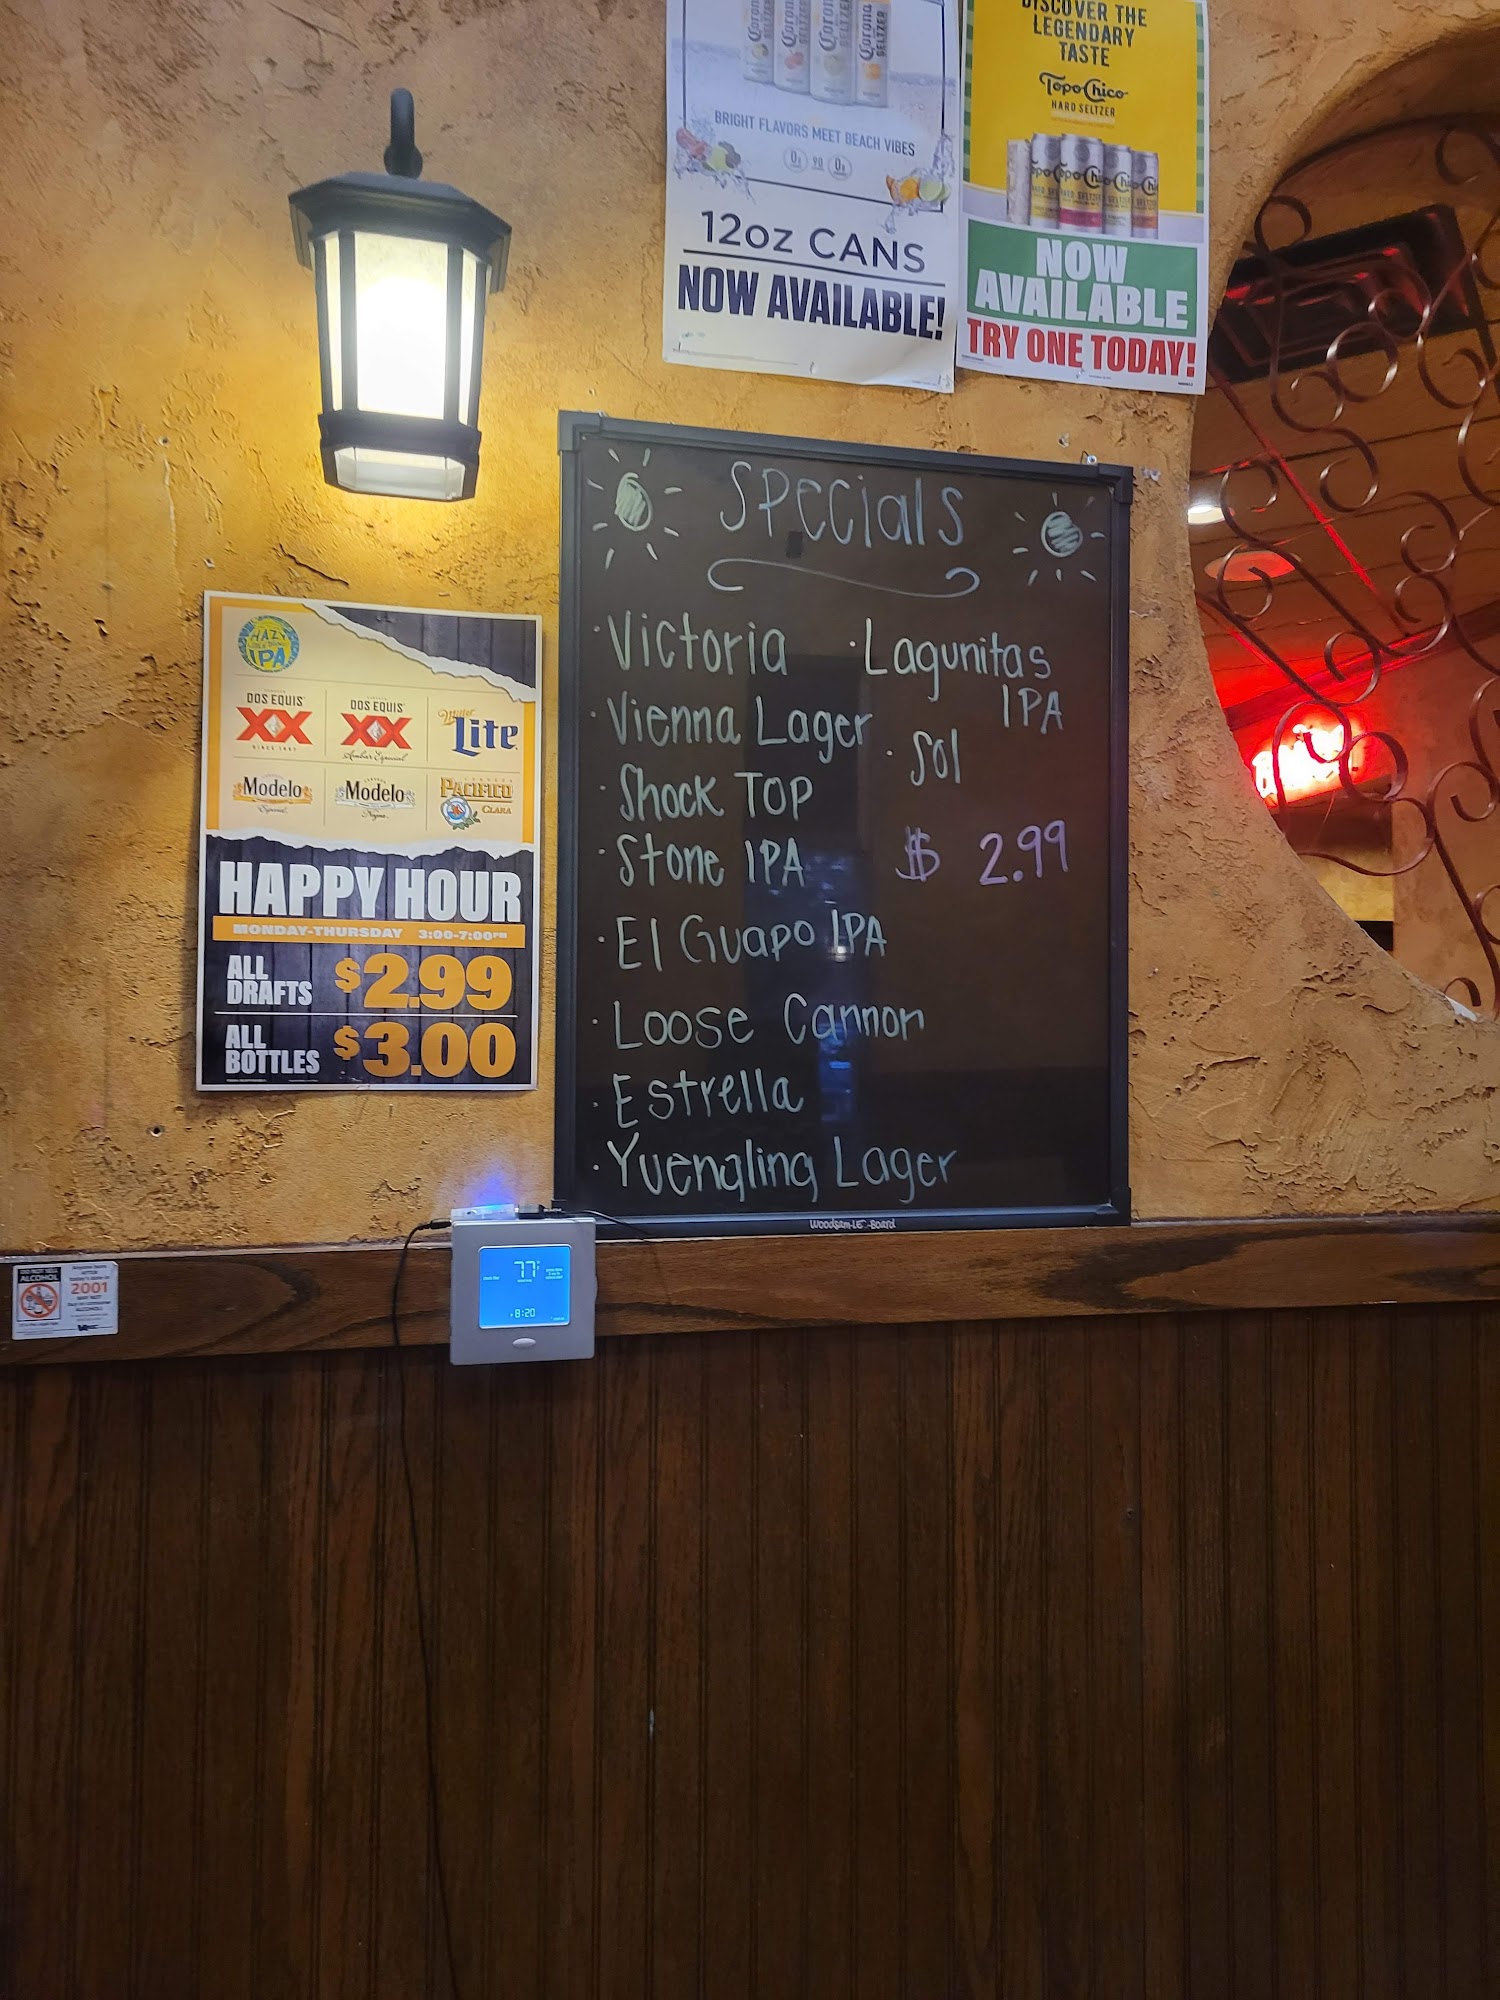 Corona SELTZER
BRIGHT FLAVORS MEET BEACH VIBES
0g 90 0g
12oz CANS
NOW AVAILABLE!
DISCOVER THE
LEGENDARY
TASTE
Topo Chico
HARD SELTZER
NOW
AVAILABLE
TRY ONE TODAY!
Specials
·Victoria
·Vienna Lager
·Shock TOP
·Stone IPA
·El Guapo IPA
·Loose Cannon
·Estrella
·Yuengling Lager
·Lagunitas
IPA
·Sol
$ 2.99
Woodsam-LE-Board
HAZY
IPA
DOS EQUIS
XX
SINCE 1897
DOS EQUIS
XX
Ambar Especial
Miller
Lite
Modelo
Especial
Modelo
Negra
PACIFICO
CLARA
HAPPY HOUR
MONDAY-THURSDAY 3:00-7:00PM
ALL
DRAFTS $2.99
ALL
BOTTLES $3.00
77
8:20
ALCOHOL
2001